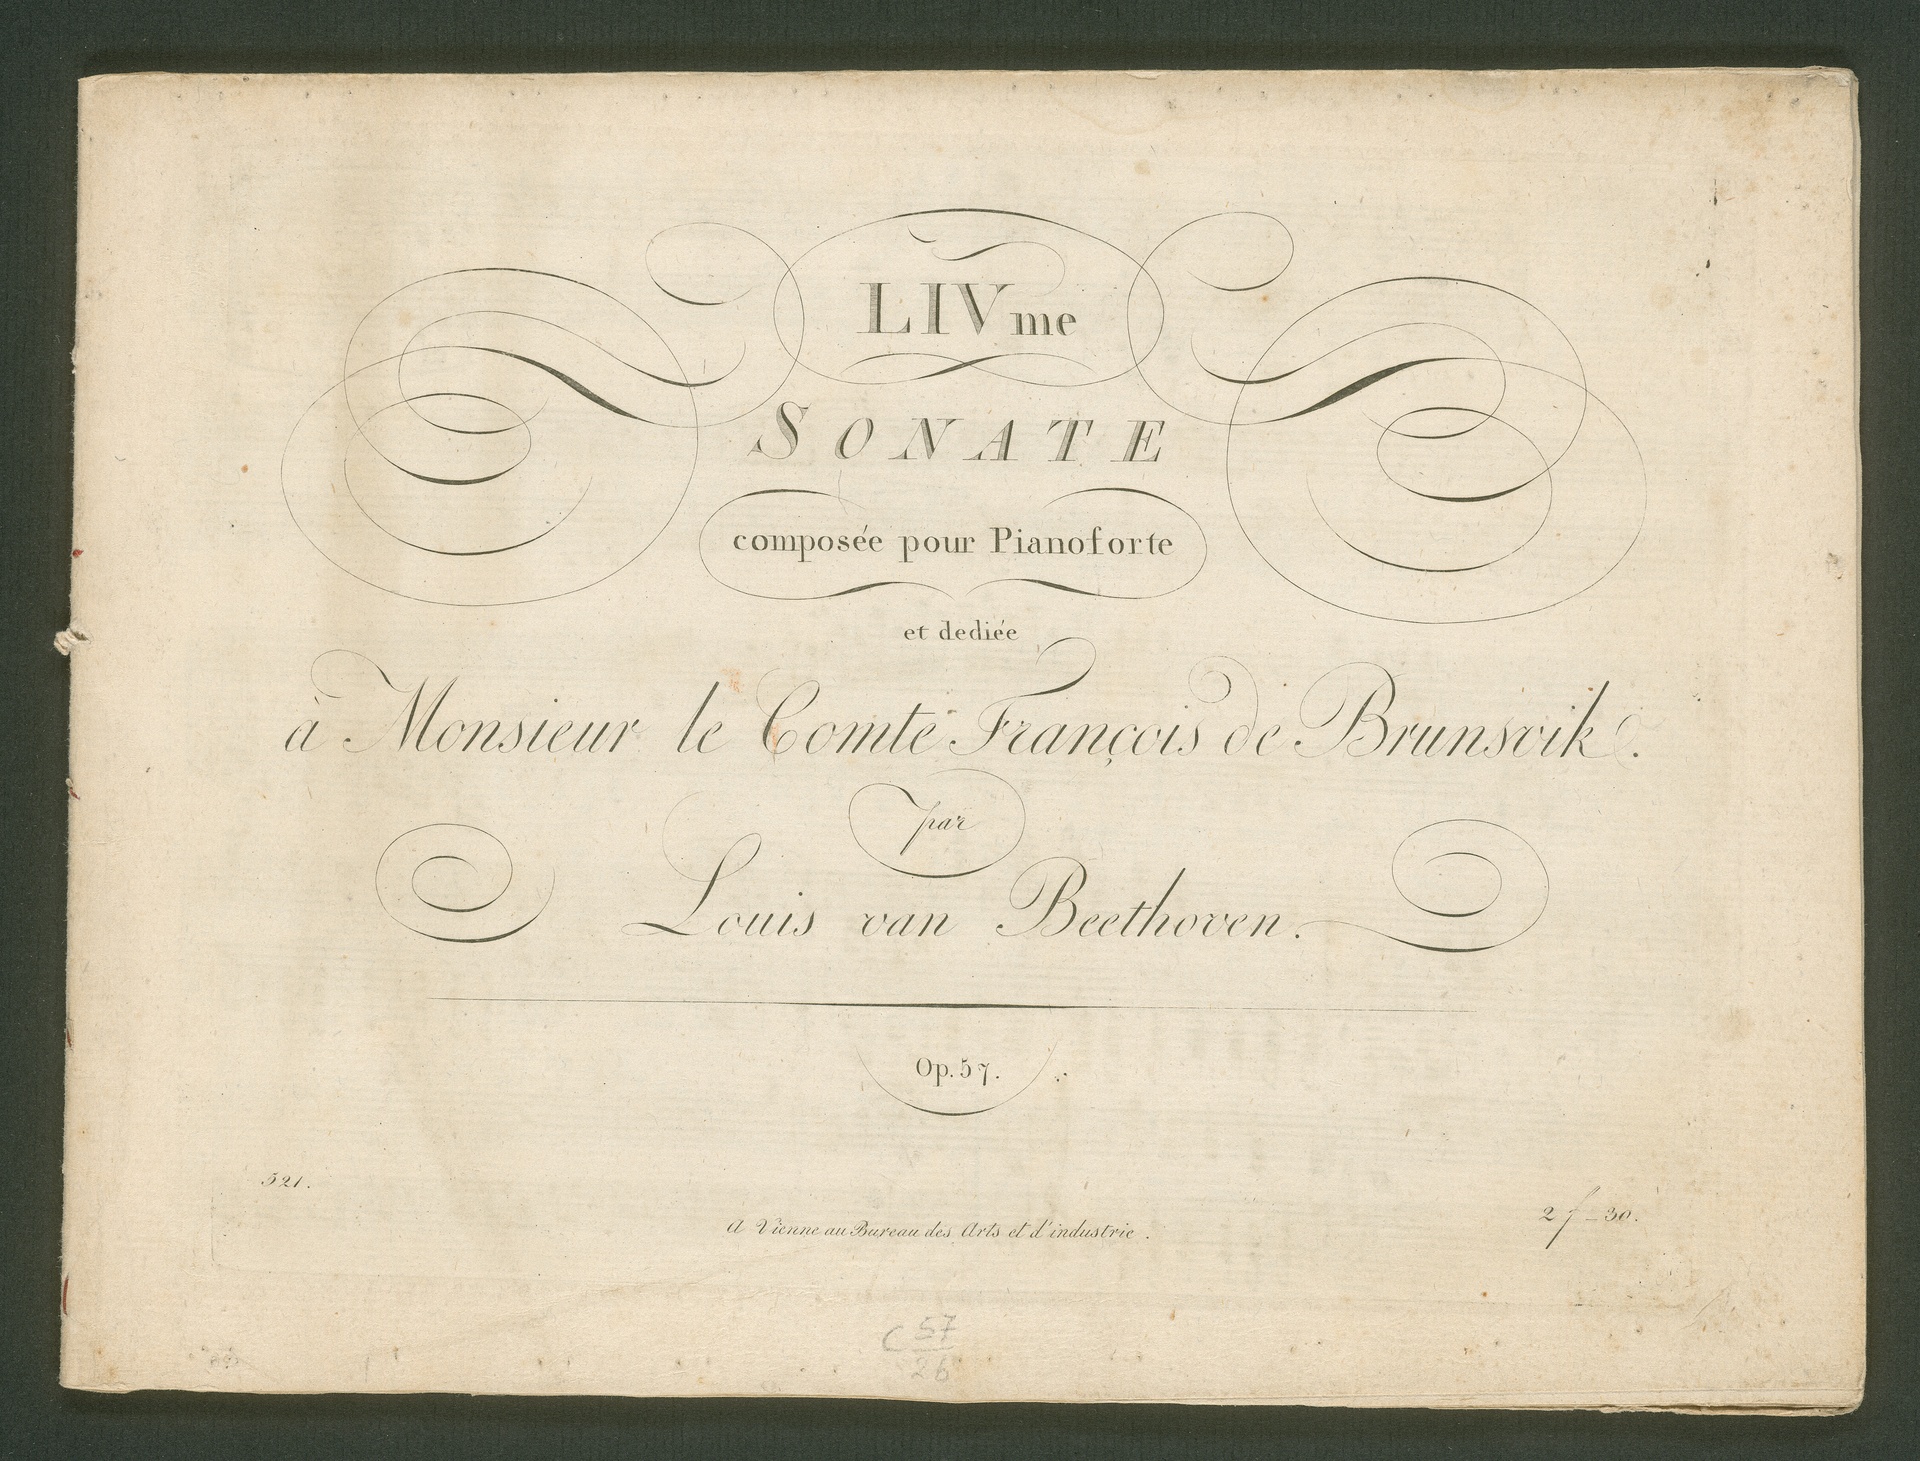 LIVme
SONATE
composée pour Pianoforte
et dediée
à Monsieur le Comte François de Brunsvik.
par
Louis van Beethoven.
Op. 57.
521.
2 f _ 30.
A Vienne au Bureau des Arts et d'industrie.
C 57
26